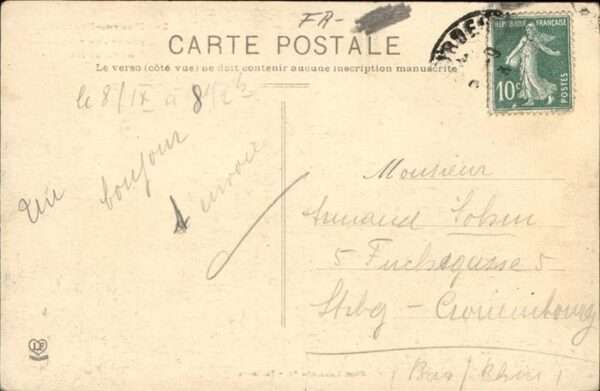 FR-
CARTE POSTALE
Le verso (côté vue) ne doit contenir aucune inscription manuscrite
REPUBLIQUE FRANÇAISE
10c
POSTES
le 8/IX à 8
Un bonjour
Monsieur
Armand
5 Fuchsgasse 5
Stbg - Cronenbourg
(Bas/Rhin)